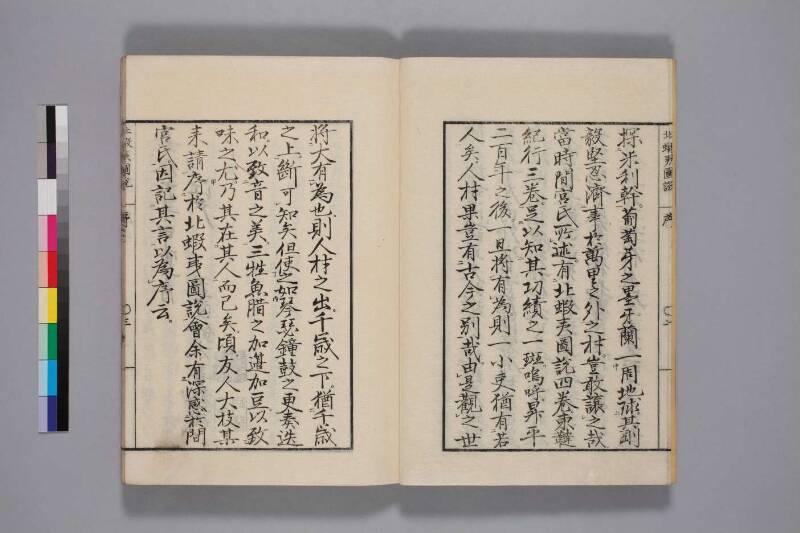 北蝦夷圖說 序 〇二
探米利幹葡萄牙之墨牙蘭一周地球其剛
毅堅忍濟事於萬里之外之材豈敢讓之哉
當時間宮氏所述有北蝦夷圖說四卷東韃
紀行三卷足以知其功績之一斑嗚呼昇平
二百年之後一旦將有為則一小吏猶有若
人矣人材果豈有古今之別哉由是觀之世
將大有為也則人材之出千歲之下猶千歲
之上斷可知矣但使之如琴瑟鐘鼓之更奏迭
和以致音之美三牲魚腊之加籩加豆以致
味之尤乃其在其人而已矣頃友人大枝某
来請序於北蝦夷圖說會余有深感於間
宮氏因記其言以為序云
北蝦夷圖說 序 〇三